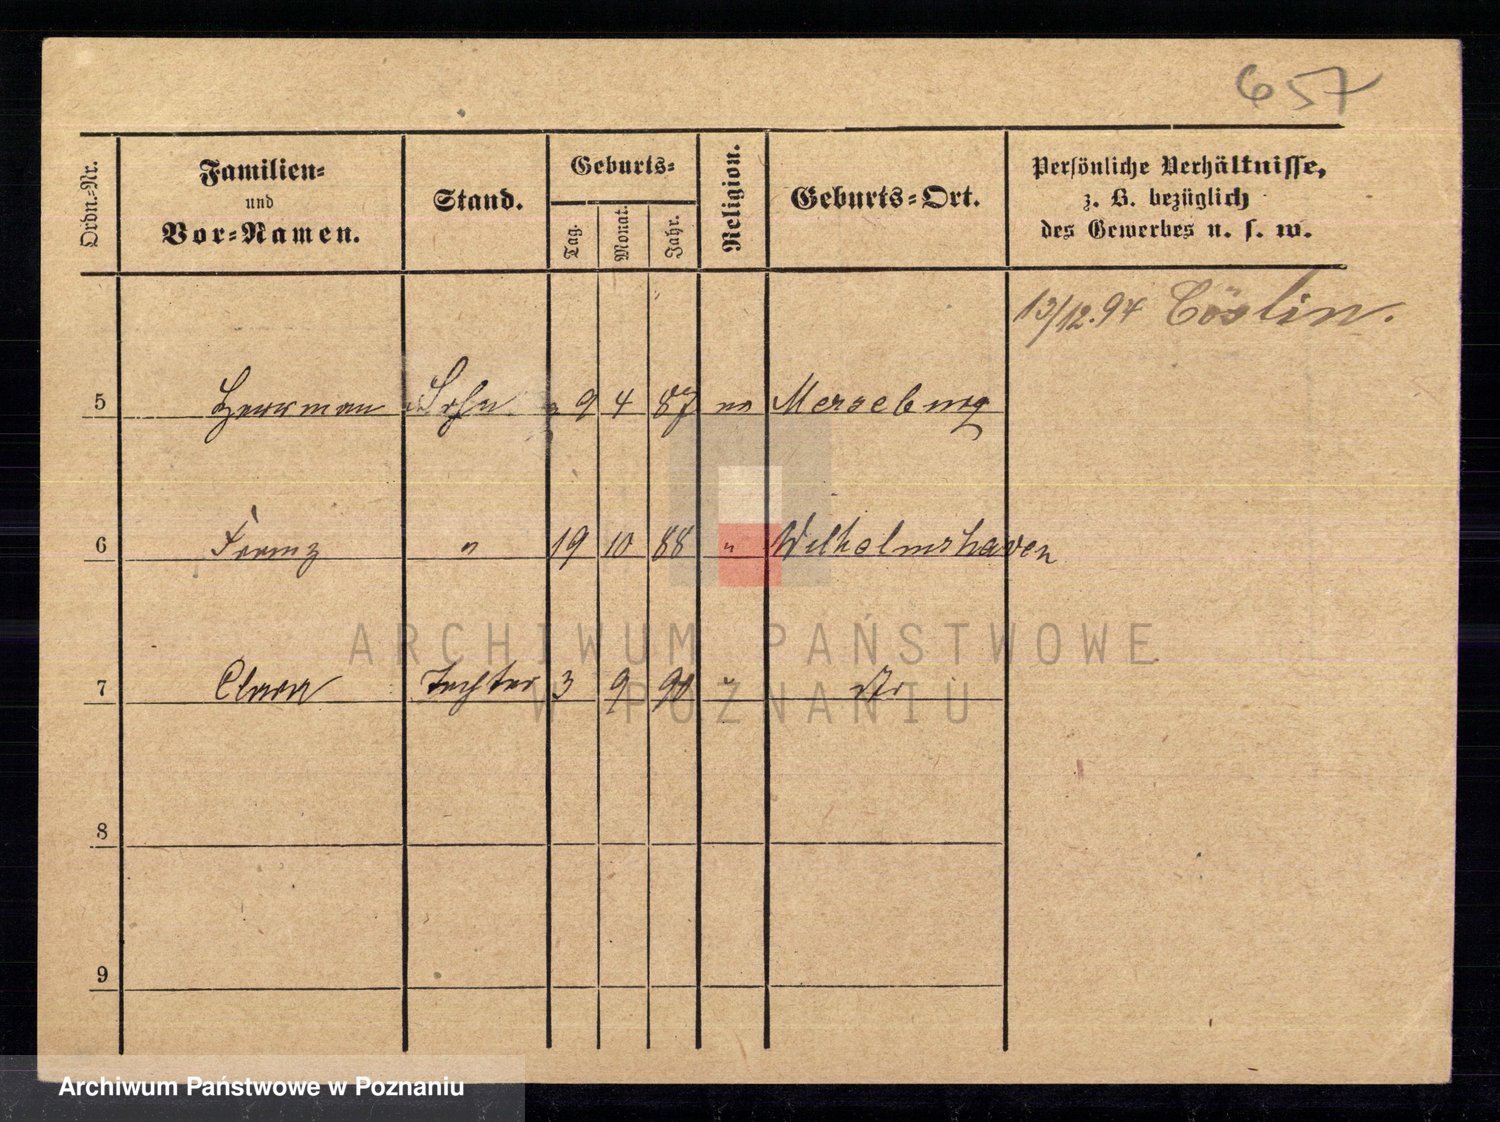 657
Ordn.-Nr.
Familien-
und
Vor-Namen.
Stand.
Geburts-
Tag.
Monat.
Jahr.
Religion.
Geburts-Ort.
Persönliche Verhältnisse,
z. B. bezüglich
des Gewerbes u. s. w.
13/12.94 Cöslin.
5 Herrman Sohn 9 4 87 Merseburg
6 Franz " 19 10 88 " Wilhelmshaven
7 Clara Tochter 3 9 90 "
8
9
ARCHIWUM PAŃSTWOWE
W POZNANIU
Archiwum Państwowe w Poznaniu